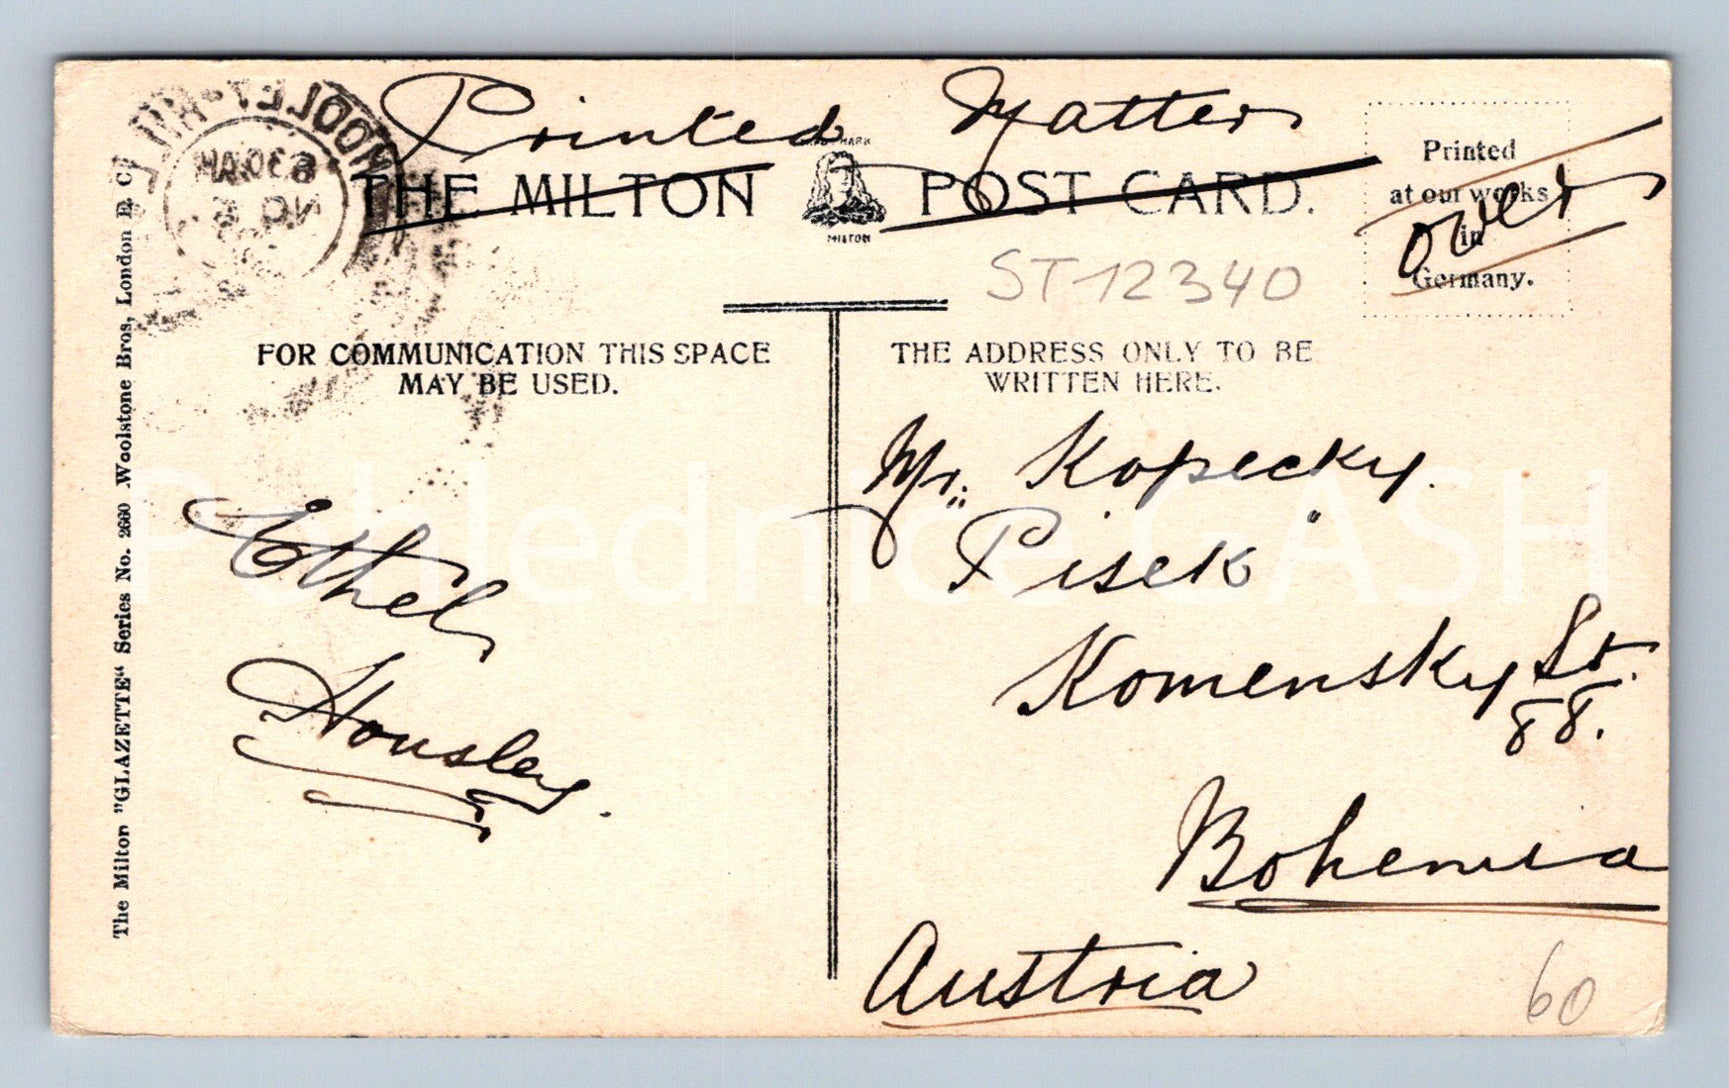 Printed Matter
THE MILTON POST CARD.
TRADE MARK
MILTON
Printed
at our works
in
Germany.
over
ST 12340
FOR COMMUNICATION THIS SPACE
MAY BE USED.
THE ADDRESS ONLY TO BE
WRITTEN HERE.
The Milton "GLAZETTE" Series No. 2660 Woolstone Bros, London E. C.
Ethel
Housley.
Mr. Kopecky.
Pisek
Komensky St.
88.
Bohemia
Austria
60
Pohlednice GASH